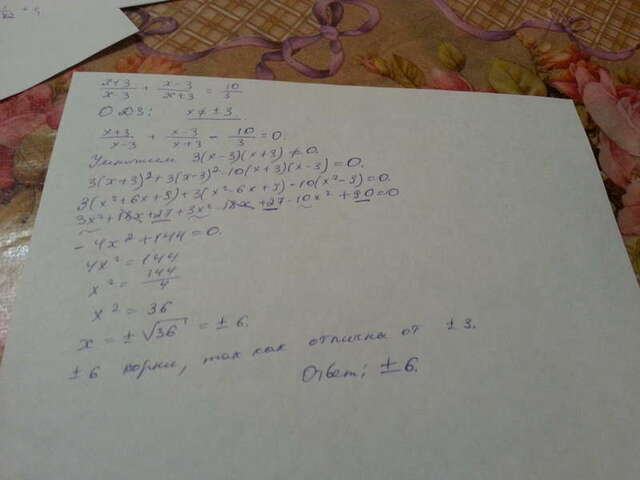 x+3/x-3 + x-3/x+3 = 10/3
ОДЗ: x≠±3
x+3/x-3 + x-3/x+3 - 10/3 = 0.
Умножим 3(x-3)(x+3) ≠ 0.
3(x+3)²+3(x-3)²-10(x+3)(x-3)=0.
3(x²+6x+9)+3(x²-6x+9)-10(x²-9)=0.
3x²+18x+27+3x²-18x+27-10x²+90=0
-4x²+144=0.
4x²=144
x²=144/4
x²=36
x=±√36=±6.
±6 корни, так как отличны от ±3.
Ответ: ±6.